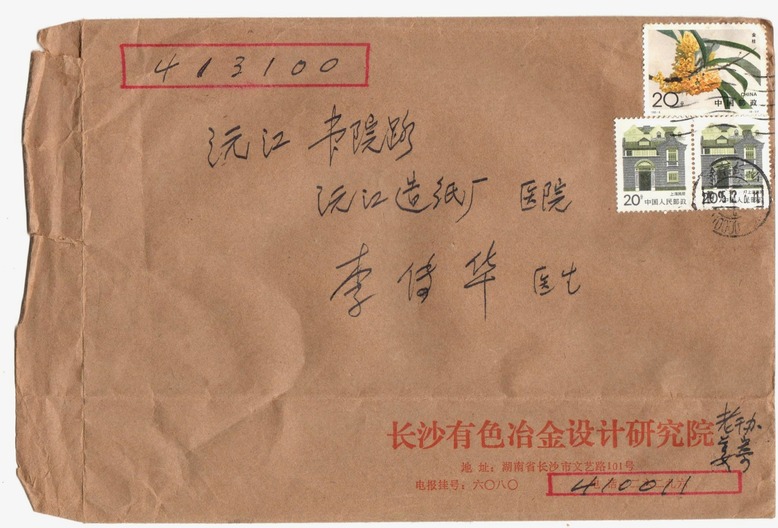 413100
沅江 书院路
沅江造纸厂 医院
李传华 医生
20分
CHINA
中国邮政
20分 中国人民邮政
长沙有色冶金设计研究院
老干办
姜
地 址：湖南省长沙市文艺路101号
电报挂号：六〇八〇
410011